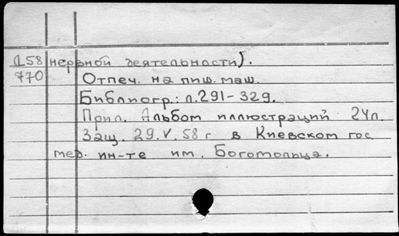 Д58 нервной деятельности).
770 Отпеч. на пиш. маш.
Библиогр.: л.291-329.
Прил. Альбом иллюстраций 24л.
Защ. 29.V.58 г в Киевском гос
мед. ин-те им. Богомольца.